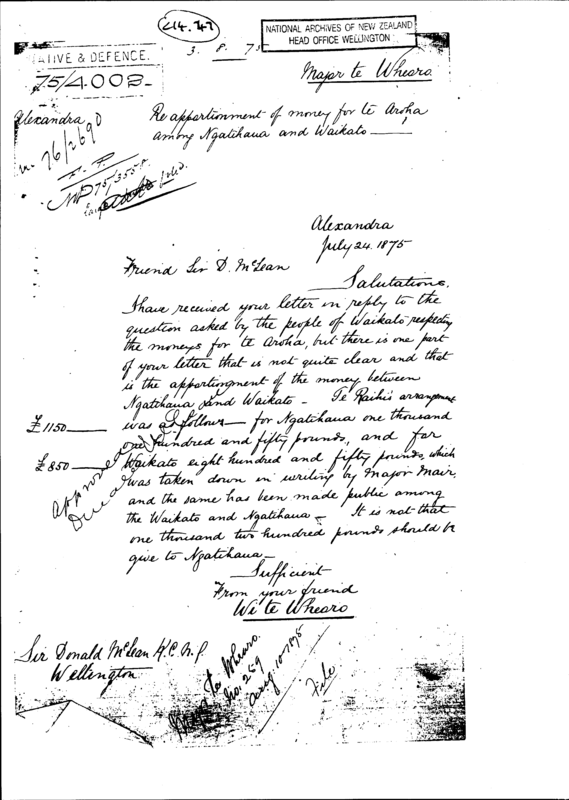 C14.47
NATIONAL ARCHIVES OF NEW ZEALAND
HEAD OFFICE WELLINGTON
3. 8. 75
ATIVE & DEFENCE.
75/4003
Major te Wheoro
Alexandra
76/2690
Re apportionment of money for te Aroha
among Ngatihaua and Waikato
NP 75/3558
Alexandra
July 24. 1875
Friend Sir D. McLean
Salutations.
I have received your letter in reply to the
question asked by the people of Waikato respecting
the moneys for te Aroha, but there is one part
of your letter that is not quite clear and that
is the apportiongment of the money between
Ngatihaua and Waikato - Te Raihi's arrangement
£1150
was as follows - for Ngatihaua one thousand
one hundred and fifty pounds, and for
£850
Waikato eight hundred and fifty pounds, which
was taken down in writing by Major Mair,
and the same has been made public among
the Waikato and Ngatihaua - It is not that
one thousand two hundred pounds should be
give to Ngatihaua -
Approved
Sufficient
From your friend
Wi te Wheoro
Sir Donald McLean K.C.M.G.
Wellington
Major Te Wheoro
No. 259
Aug 10 1875
File